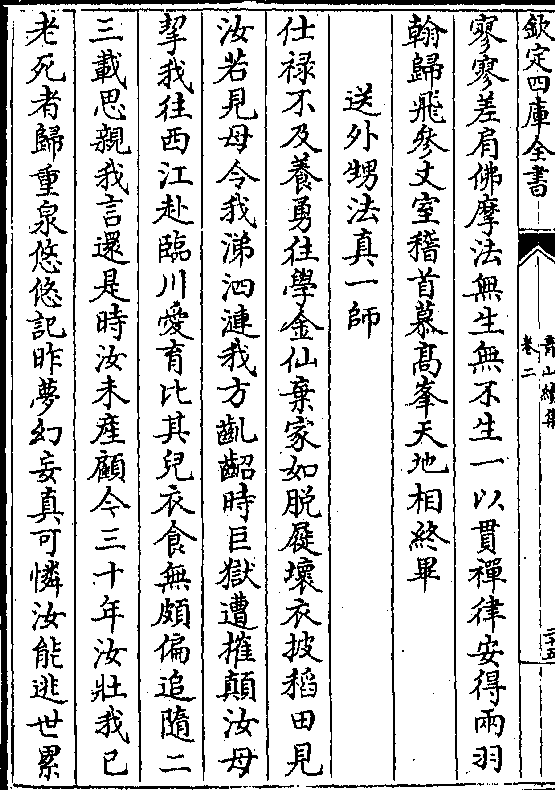 欽定四庫全書
卷二
寥寥差肩佛摩法無生無不生一以貫禪律安得兩羽
翰歸飛參丈室稽首慕髙峯天地相終畢
送外甥法真一師
仕禄不及養勇往學金仙棄家如脱屣壞衣披稻田見
汝若見母令我涕泗漣我方齓齠時巨獄遭摧顛汝母
挈我往西江赴臨川愛育比其兒衣食無頗偏追隨二
三載思親我言還是時汝未産顧今三十年汝壯我已
老死者歸重泉悠悠記昨夢幻妄真可憐汝能逃世累